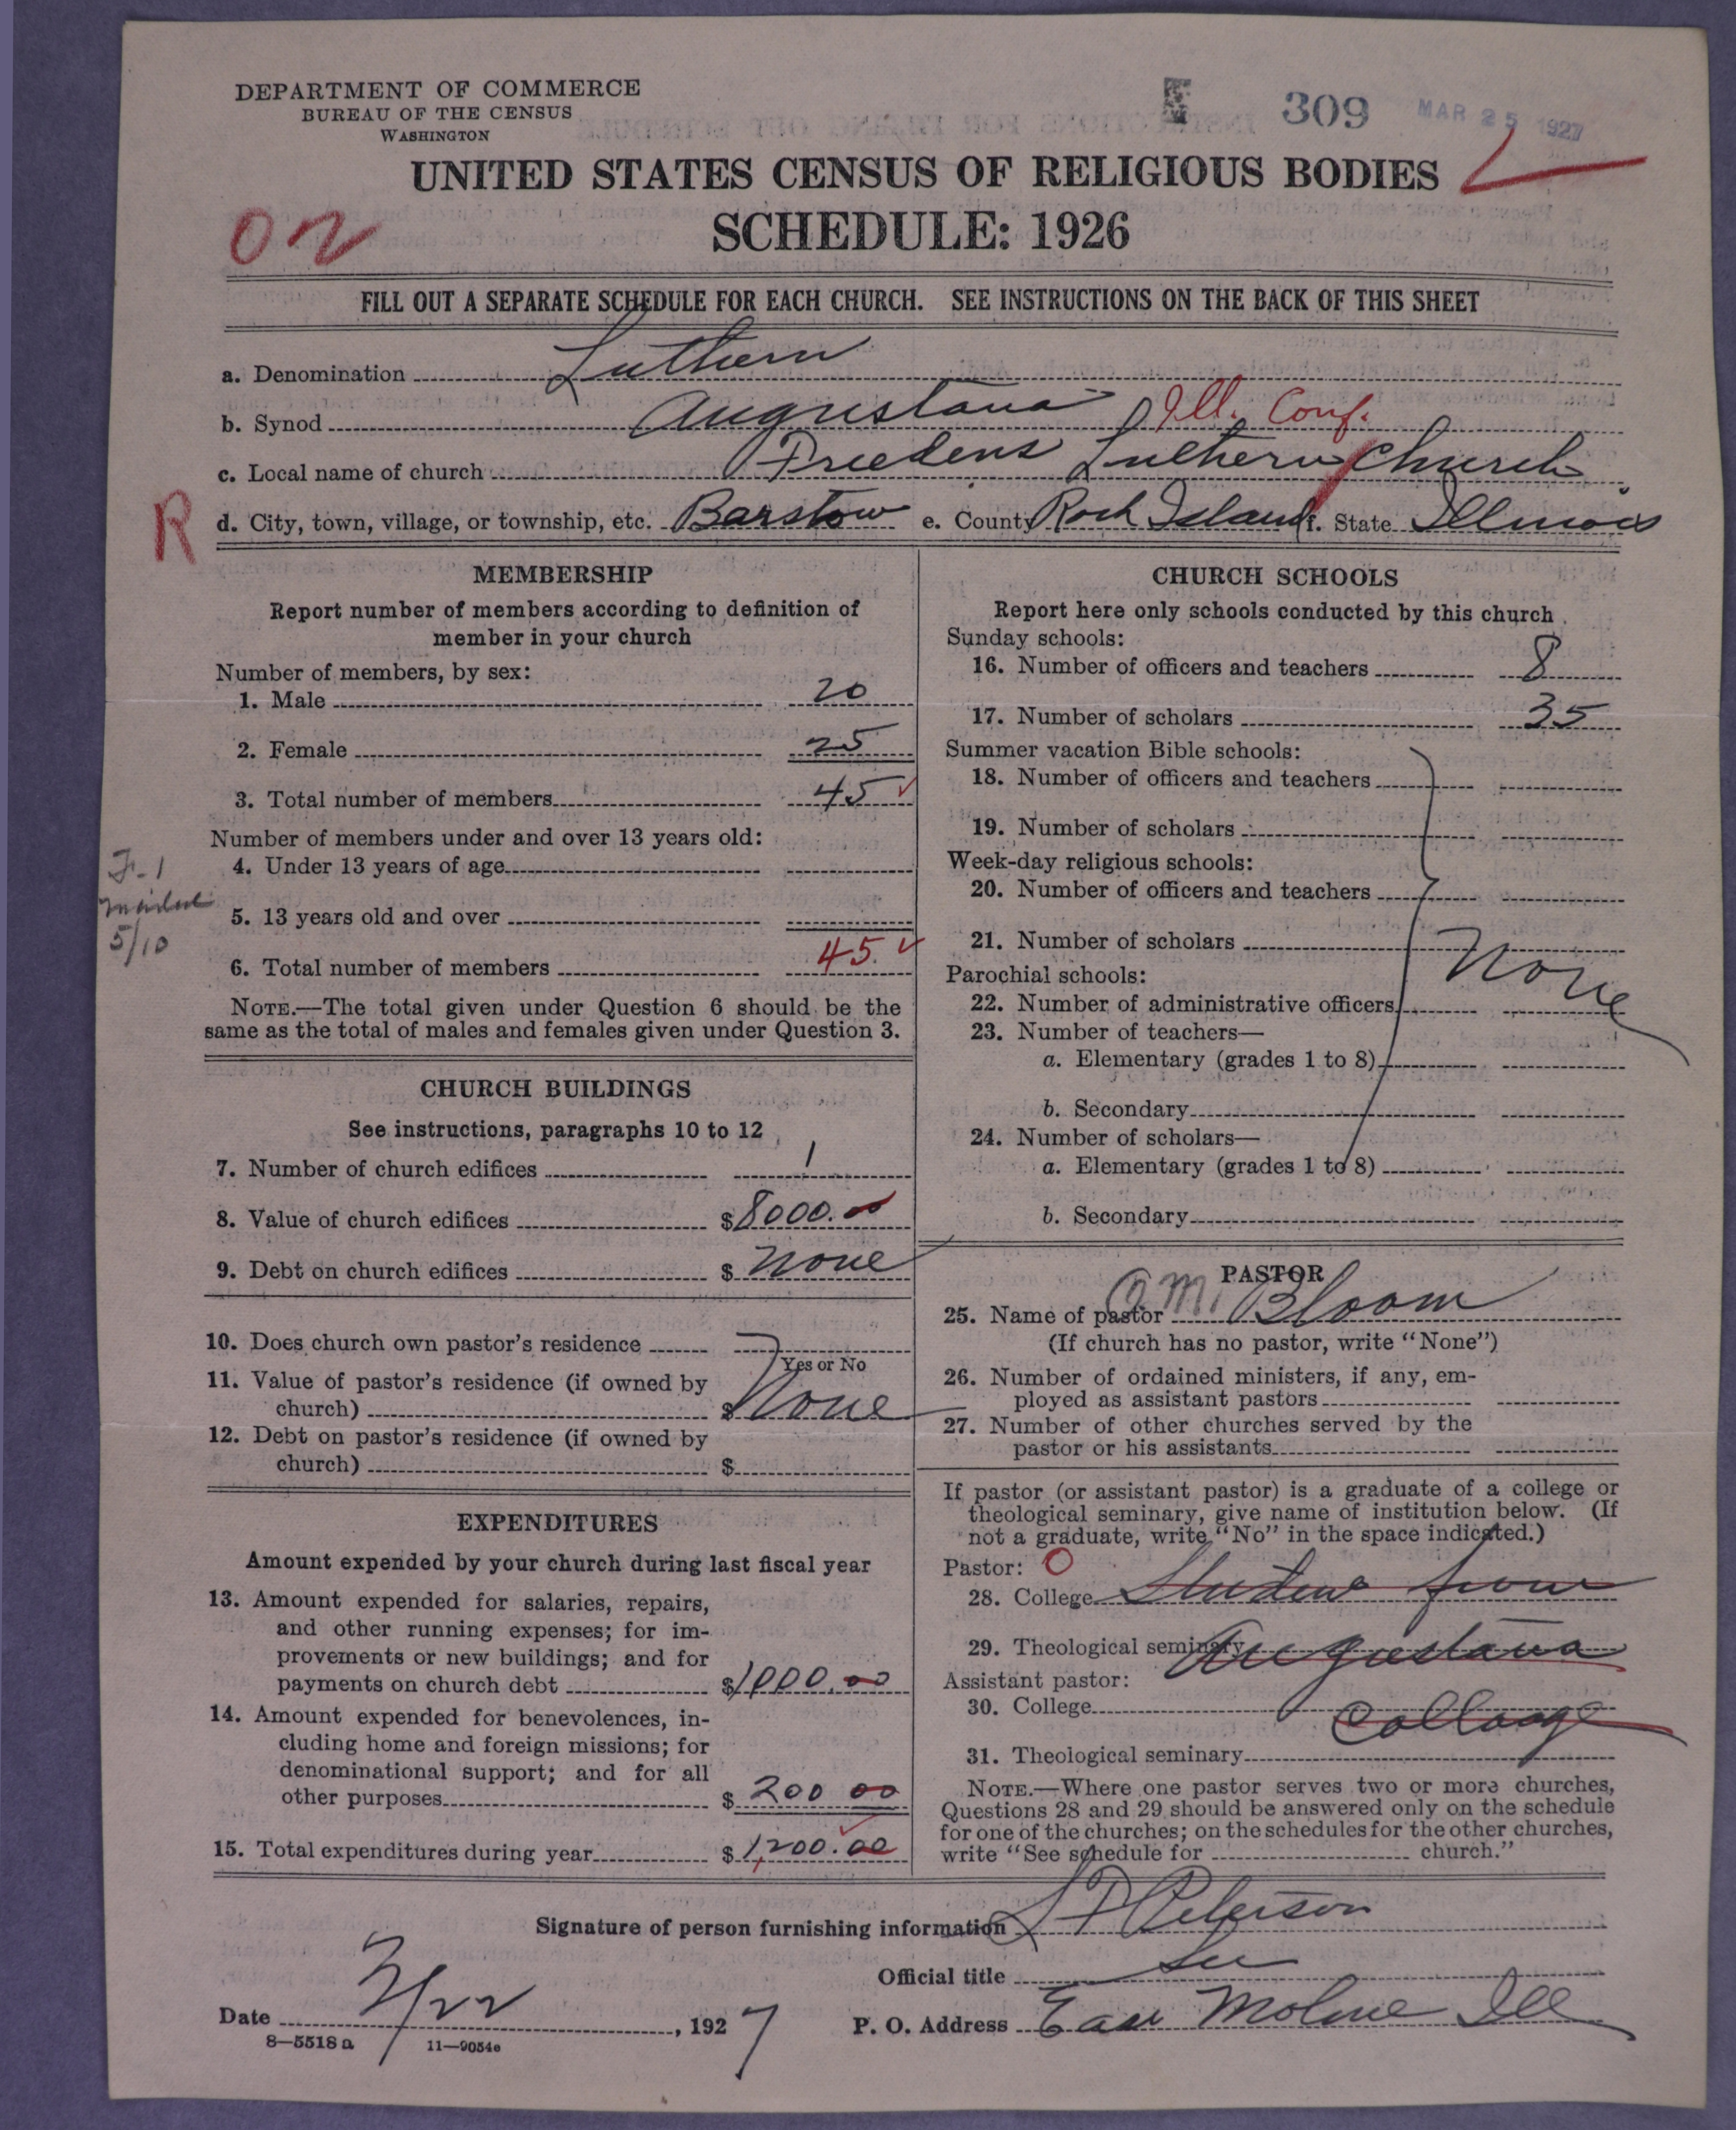 DEPARTMENT OF COMMERCE
BUREAU OF THE CENSUS
WASHINGTON
309 MAR 25 1927
UNITED STATES CENSUS OF RELIGIOUS BODIES
SCHEDULE: 1926
FILL OUT A SEPARATE SCHEDULE FOR EACH CHURCH. SEE INSTRUCTIONS ON THE BACK OF THIS SHEET
a. Denomination Luthern
b. Synod Augustana Ill. Conf.
c. Local name of church Freedens Luthern Church
R
d. City, town, village, or township, etc. Barstow e. County Rock Island f. State Illinois
MEMBERSHIP
Report number of members according to definition of
member in your church
Number of members, by sex:
1. Male 20
2. Female 25
3. Total number of members 45
Number of members under and over 13 years old:
4. Under 13 years of age
5. 13 years old and over
6. Total number of members 45
F-1
mailed
5/10
NOTE.—The total given under Question 6 should be the
same as the total of males and females given under Question 3.
CHURCH BUILDINGS
See instructions, paragraphs 10 to 12
7. Number of church edifices 1
8. Value of church edifices $8000.00
9. Debt on church edifices $ None
10. Does church own pastor's residence
Yes or No
11. Value of pastor's residence (if owned by
church) $ None
12. Debt on pastor's residence (if owned by
church) $
EXPENDITURES
Amount expended by your church during last fiscal year
13. Amount expended for salaries, repairs,
and other running expenses; for im-
provements or new buildings; and for
payments on church debt $1000.00
14. Amount expended for benevolences, in-
cluding home and foreign missions; for
denominational support; and for all
other purposes $ 200 00
15. Total expenditures during year $ 1,200.00
CHURCH SCHOOLS
Report here only schools conducted by this church
Sunday schools:
16. Number of officers and teachers 8
17. Number of scholars 35
Summer vacation Bible schools:
18. Number of officers and teachers
19. Number of scholars
Week-day religious schools:
20. Number of officers and teachers
21. Number of scholars
None
Parochial schools:
22. Number of administrative officers
23. Number of teachers—
a. Elementary (grades 1 to 8)
b. Secondary
24. Number of scholars—
a. Elementary (grades 1 to 8)
b. Secondary
PASTOR
25. Name of pastor M. Bloom
(If church has no pastor, write "None")
26. Number of ordained ministers, if any, em-
ployed as assistant pastors
27. Number of other churches served by the
pastor or his assistants
If pastor (or assistant pastor) is a graduate of a college or
theological seminary, give name of institution below. (If
not a graduate, write "No" in the space indicated.)
Pastor: O
28. College Student from
29. Theological seminary Augustana
Assistant pastor:
30. College Collage
31. Theological seminary
NOTE.—Where one pastor serves two or more churches,
Questions 28 and 29 should be answered only on the schedule
for one of the churches; on the schedules for the other churches,
write "See schedule for church."
Signature of person furnishing information Peterson
Official title Sec
Date 3/22, 1927 P. O. Address East Moline Ill
8—5518 a 11—9054e